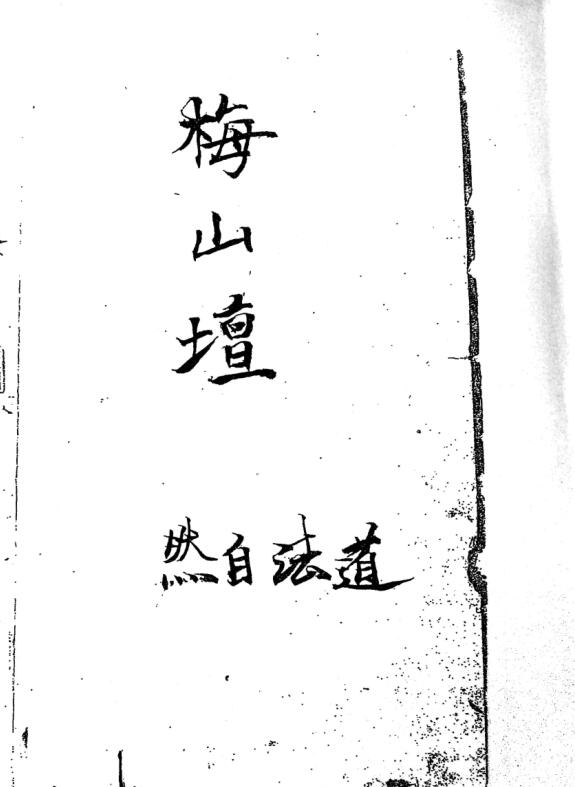 梅山壇
道法自然